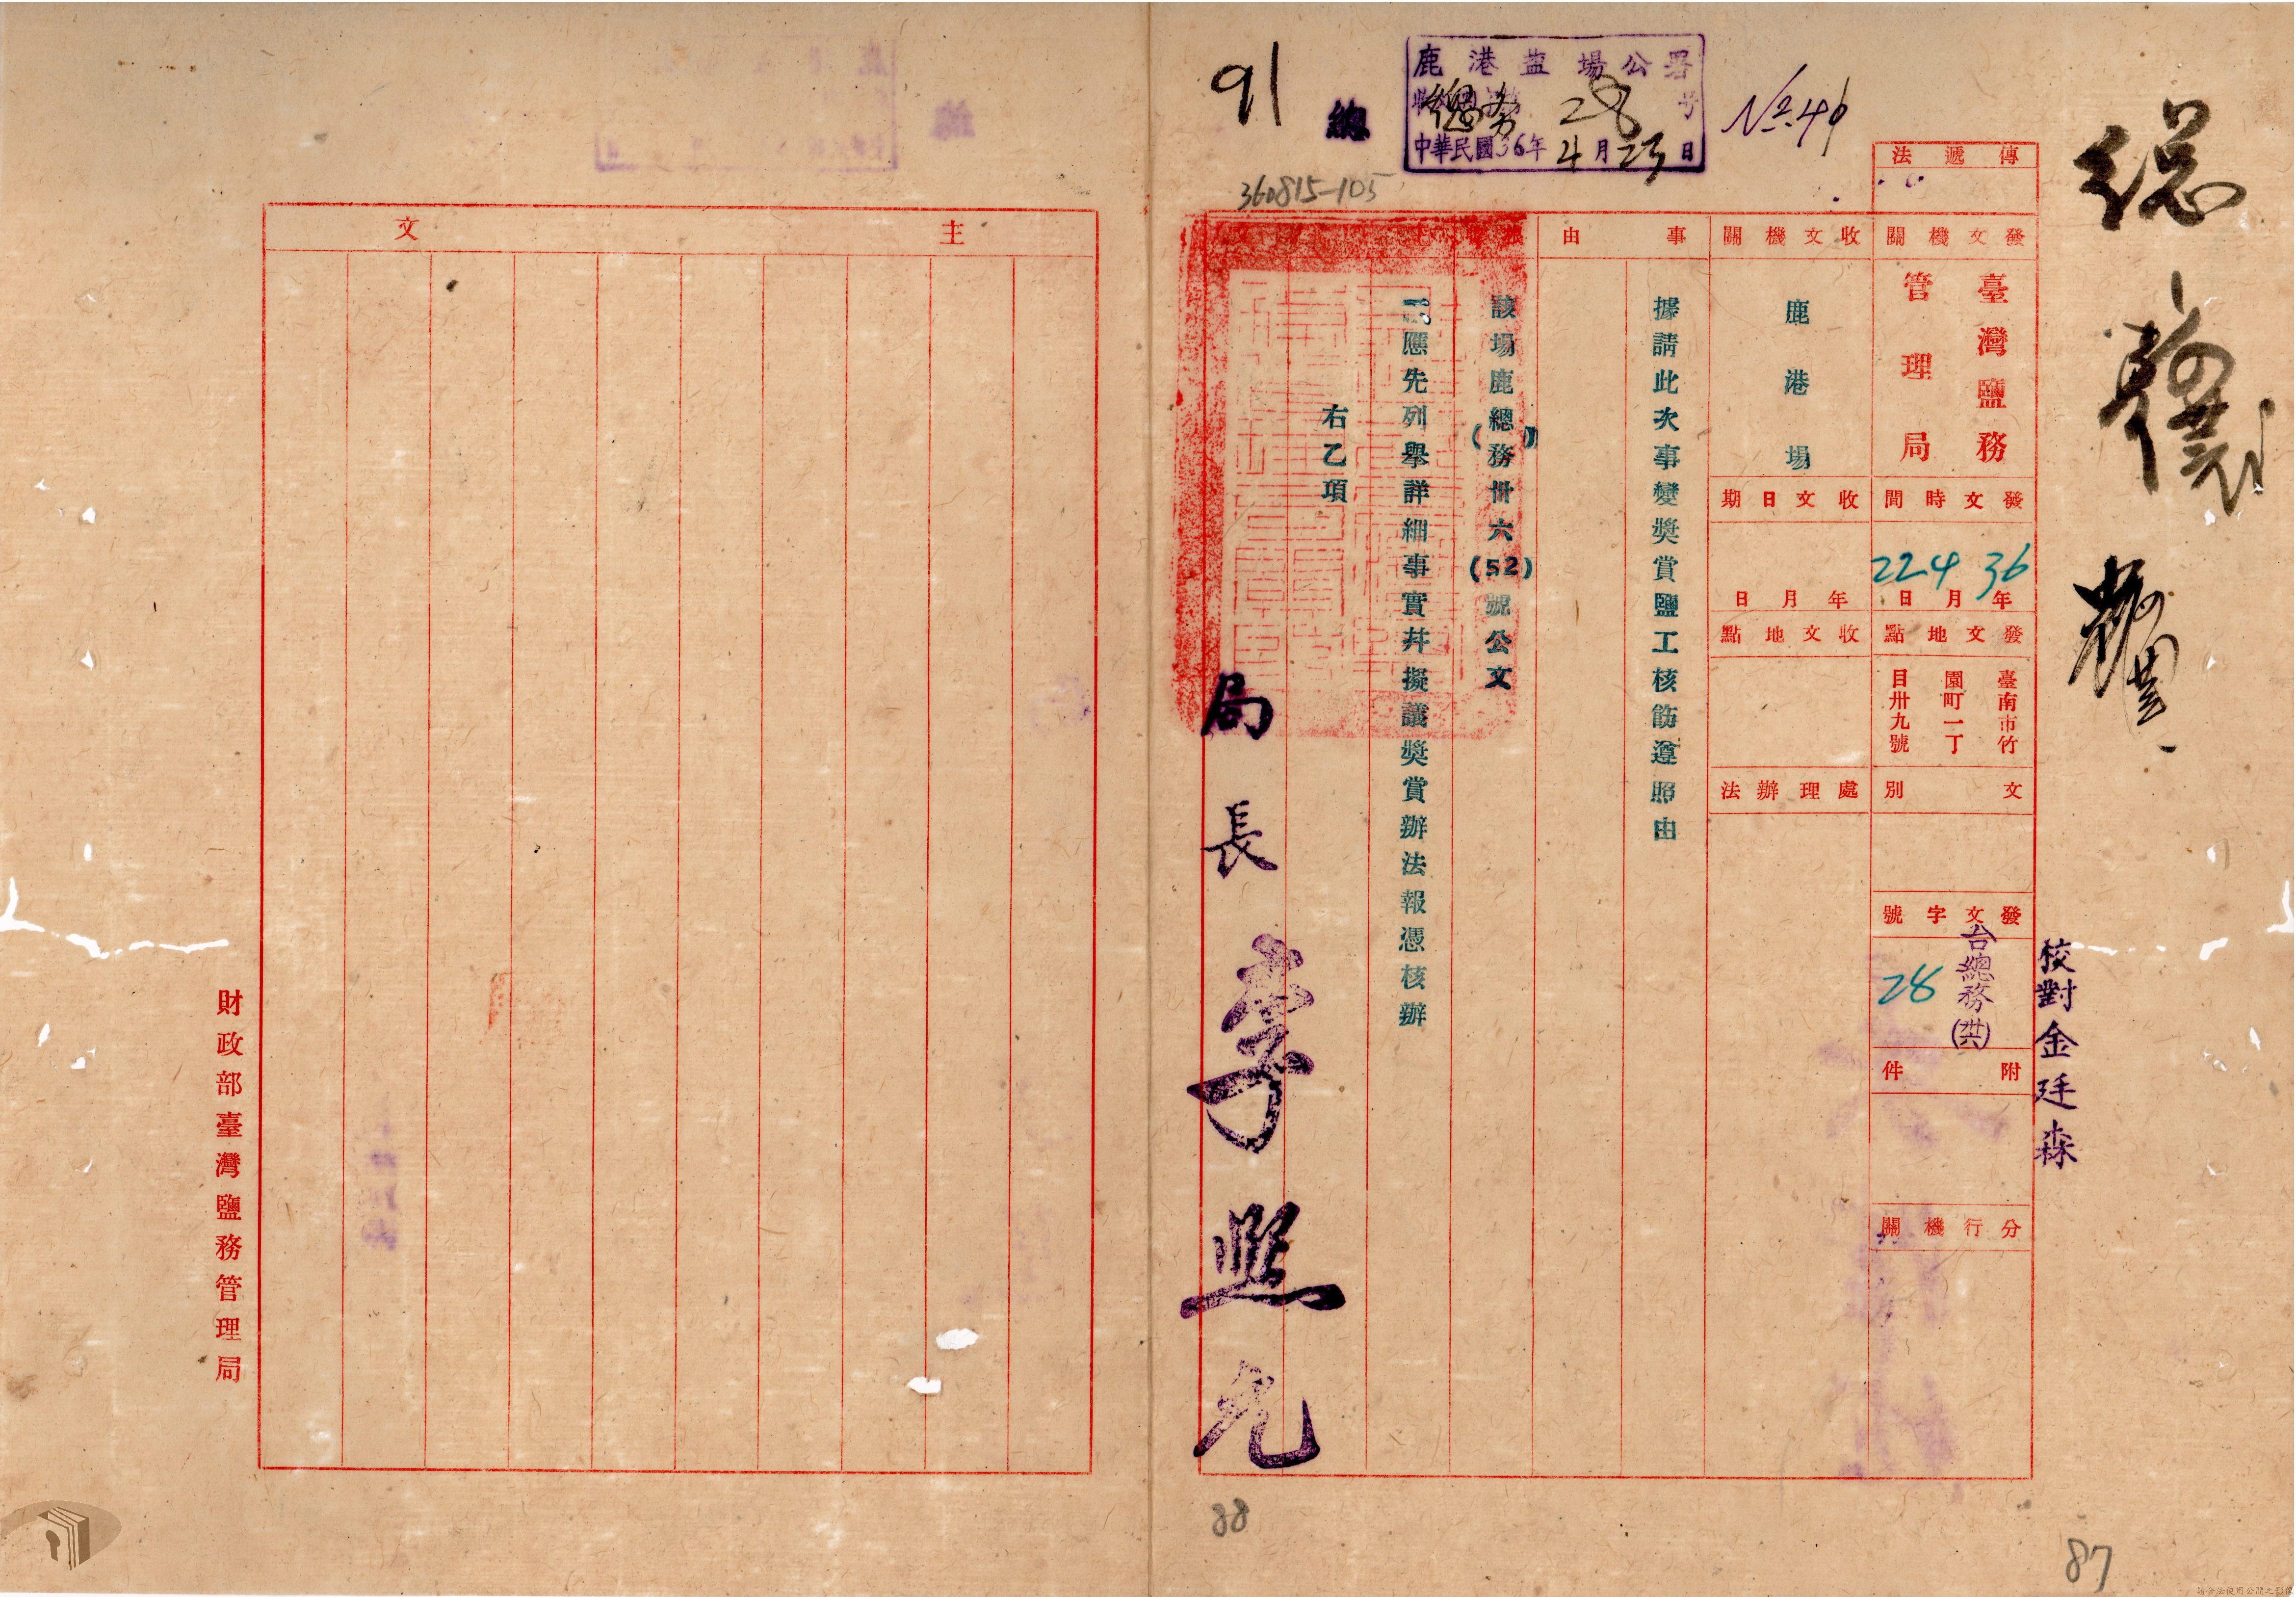 91
總
鹿港盐場公署
總務 28 号
中華民國36年4月23日
No.49
360815-105
傳遞法
總
發文機關
臺灣鹽務
管理局
發文時間
36年4月22日
發文地點
臺南市竹
園町一丁
目卅九號
文別
發文字號
台總務(卅六)
28
附件
分行機關
校對金廷森
收文機關
鹿港場
收文日期
年月日
收文地點
處理辦法
事由
據請此次事變獎賞鹽工核飭遵照由
該場鹿總務卅六(52)號公文
應先列舉詳細事實幷擬議獎賞辦法報憑核辦
右乙項
局長
主文
財政部臺灣鹽務管理局
88
87